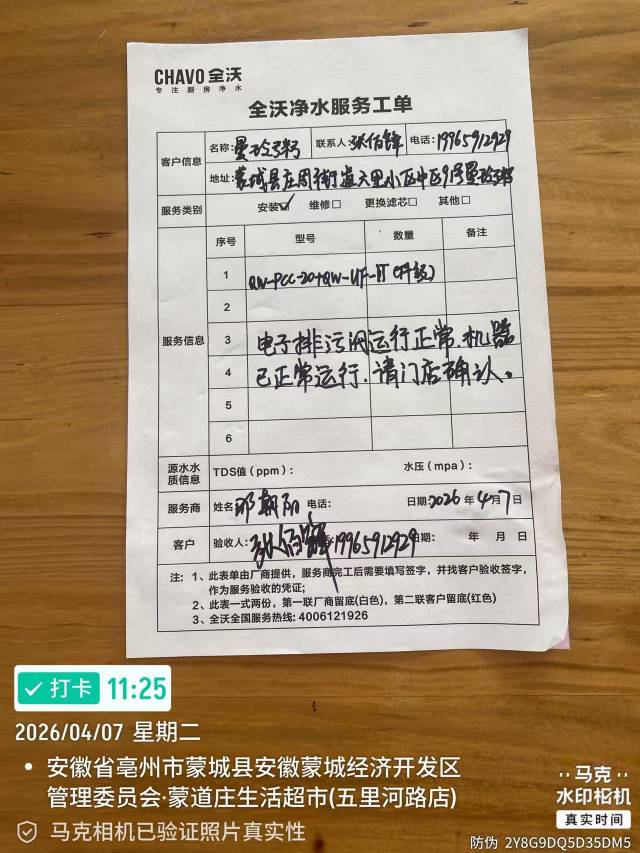 CHAVO 全沃
专注厨房净水
全沃净水服务工单
客户信息
名称: 曼玲粥 联系人: 张佰锋 电话: 19965912929
地址: 蒙城县庄周街道六里小区中区91号曼玲粥
服务类别 安装☑ 维修□ 更换滤芯□ 其他□
服务信息
序号 型号 数量 备注
1 QW-PCC-20+QW-UF-1T(升级)
2
3 电子排污阀运行正常,机器
4 已正常运行,请门店确认。
5
6
源水水质信息 TDS值(ppm): 水压(mpa):
服务商 姓名 邓朝阳 电话: 日期:2026年4月7日
客户 验收人: 张佰锋 19965912929 日期: 年 月 日
注: 1、此表单由厂商提供,服务商完工后需要填写签字,并找客户验收签字,
作为服务验收的凭证;
2、此表一式两份,第一联厂商留底(白色),第二联客户留底(红色)
3、全沃全国服务热线: 4006121926
打卡 11:25
2026/04/07 星期二
安徽省亳州市蒙城县安徽蒙城经济开发区
管理委员会·蒙道庄生活超市(五里河路店)
马克相机已验证照片真实性
马克
水印相机
真实时间
防伪 2Y8G9DQ5D35DM5